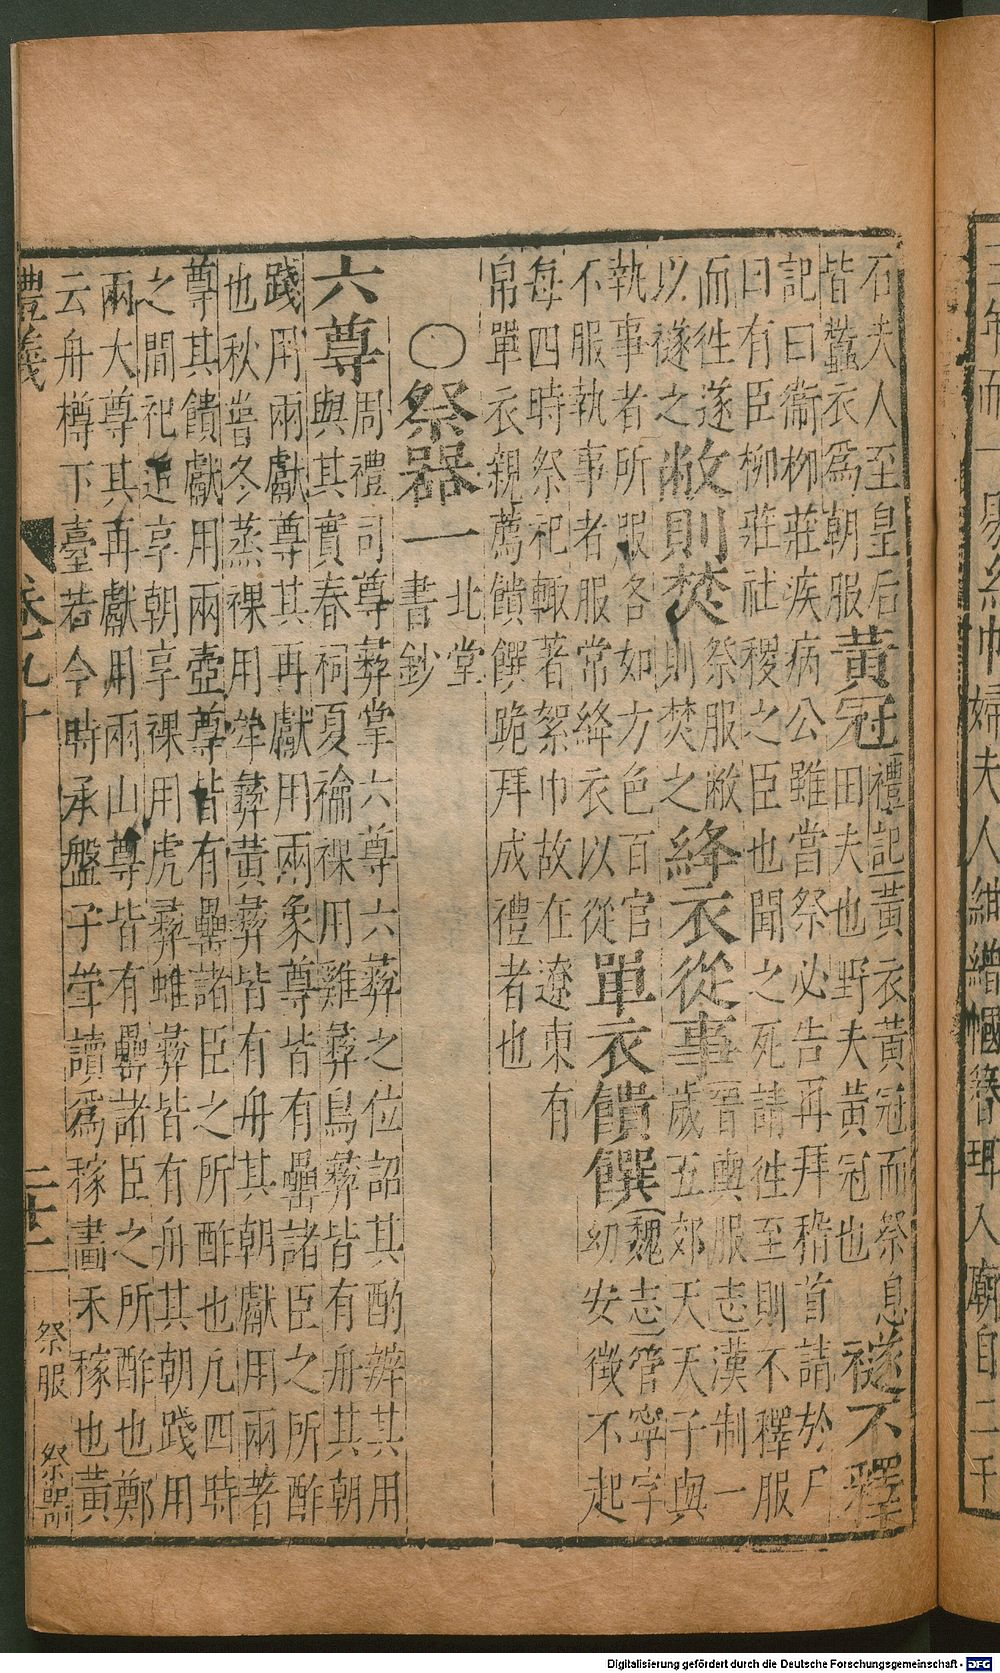 年而
婦夫人紺繒幗簪珥入廟自二千
石夫人至皇后
皆蠶衣爲朝服
黃冠
禮記黃衣黃冠而祭息
田夫也野夫黃冠也
襚不釋
記曰衞柳莊疾病公雖當祭必告再拜稽首請於尸
曰有臣柳莊社稷之臣也聞之死請往至則不釋服
而往遂
以襚之
敝則焚
祭服敝
則焚之
絳衣從事
晉輿服志漢制一
歲五郊天天子與
執事者所服各如方色百官
不服執事者服常絳衣以從
單衣饋饌
魏志管寧字
幼安徵不起
每四時祭祀輒著絮巾故在遼東有
帛單衣親薦饋饌跪拜成禮者也
○祭器一
北堂
書鈔
六尊
周禮司尊彝掌六尊六彝之位詔其酌辨其用
與其實春祠夏禴祼用雞彝鳥彝皆有舟其朝
踐用兩獻尊其再獻用兩象尊皆有罍諸臣之所酢
也秋嘗冬蒸祼用斝彝黃彝皆有舟其朝獻用兩著
尊其饋獻用兩壺尊皆有罍諸臣之所酢也凡四時
之間祀追享朝享祼用虎彝蜼彝皆有舟其朝踐用
兩大尊其再獻用兩山尊皆有罍諸臣之所酢也鄭
云舟樽下臺若今時承盤子斝讀爲稼畫禾稼也黃
禮儀
卷九十
祭服 祭器
Digitalisierung gefördert durch die Deutsche Forschungsgemeinschaft - DFG